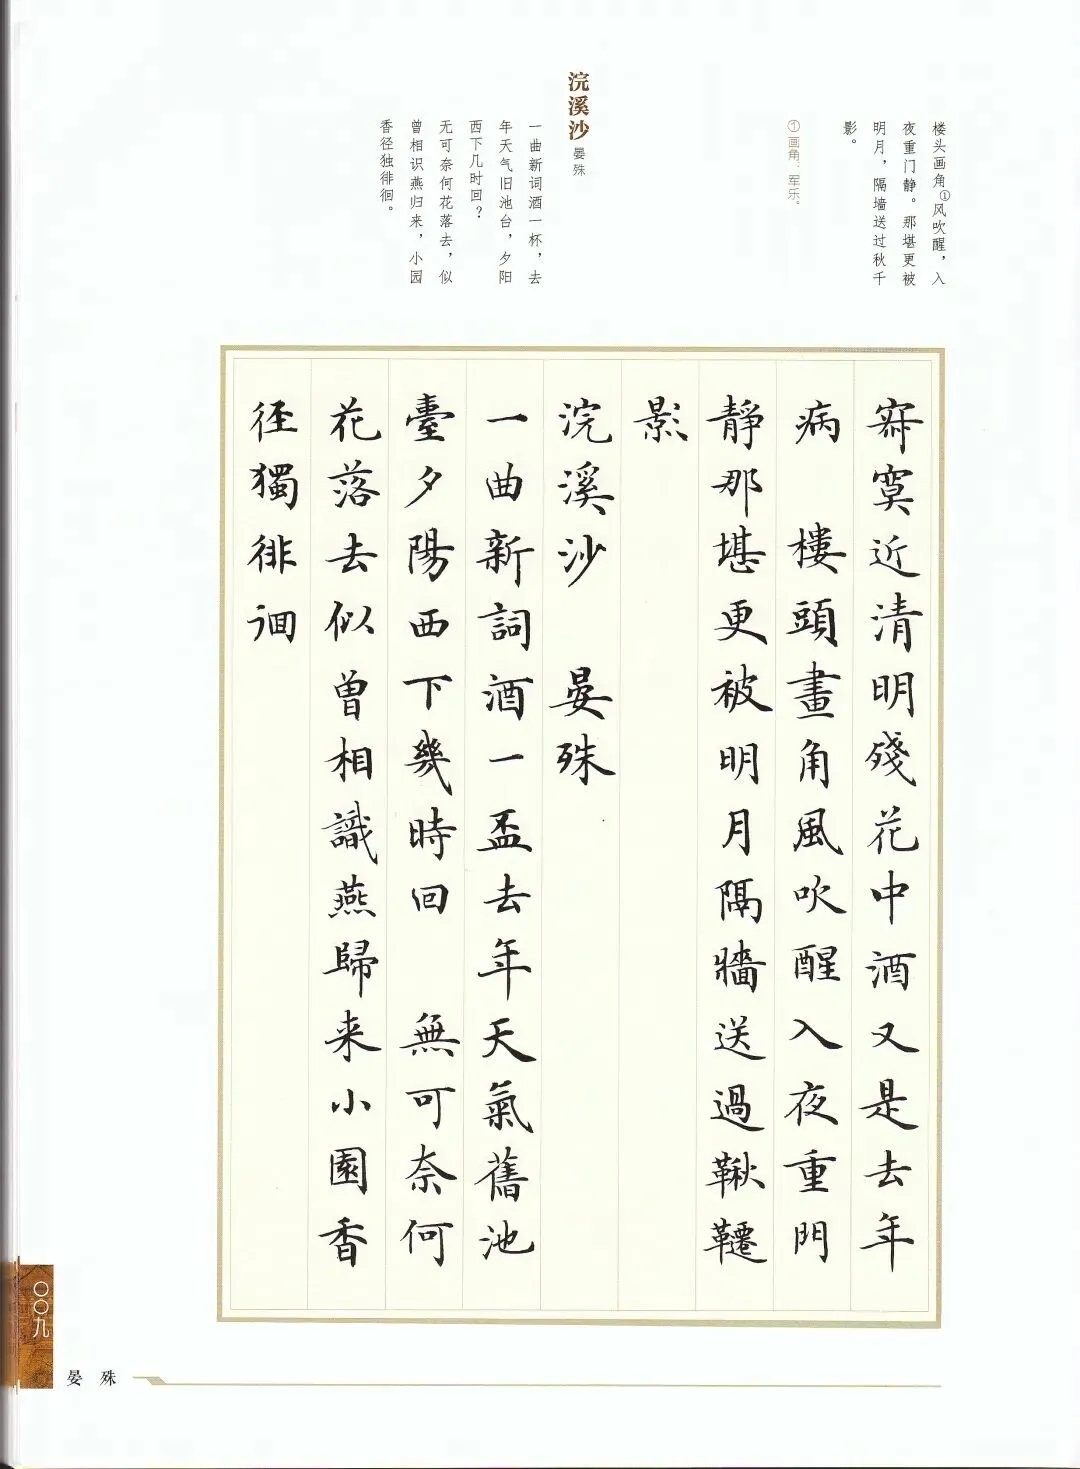 楼头画角①风吹醒，入
夜重门静。那堪更被
明月，隔墙送过秋千
影。
①画角：军乐。
浣溪沙 晏殊
一曲新词酒一杯，去
年天气旧池台，夕阳
西下几时回？
无可奈何花落去，似
曾相识燕归来，小园
香径独徘徊。
寂寞近清明殘花中酒又是去年
病 樓頭畫角風吹醒入夜重門
靜那堪更被明月隔牆送過鞦韆
影
浣溪沙 晏殊
一曲新詞酒一盃去年天氣舊池
臺夕陽西下幾時回 無可奈何
花落去似曾相識燕歸来小園香
徑獨徘徊
〇〇九
晏殊